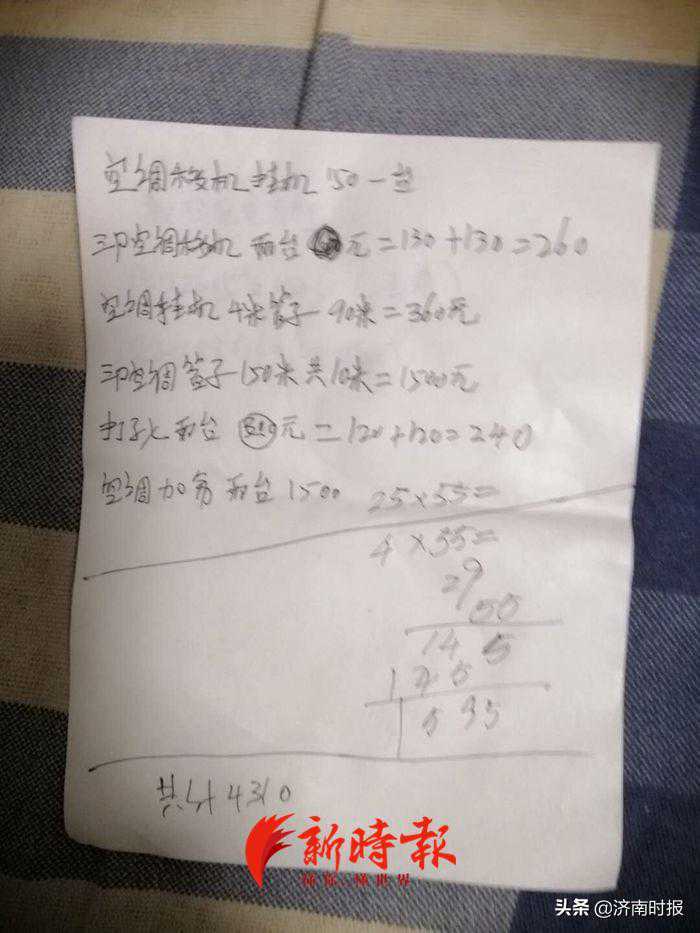 空调移机挂机150一台
三P空调移机 两台 元=130+130=260
空调挂机 4米管子一90米=360元
三P空调管子150米共10米=1500元
打孔 两台 元=120+120=240
空调加 两台1500
25×55=
4×55=
29
55
145
145
1595
共计4310
新時報
懂你·懂世界
头条 @济南时报